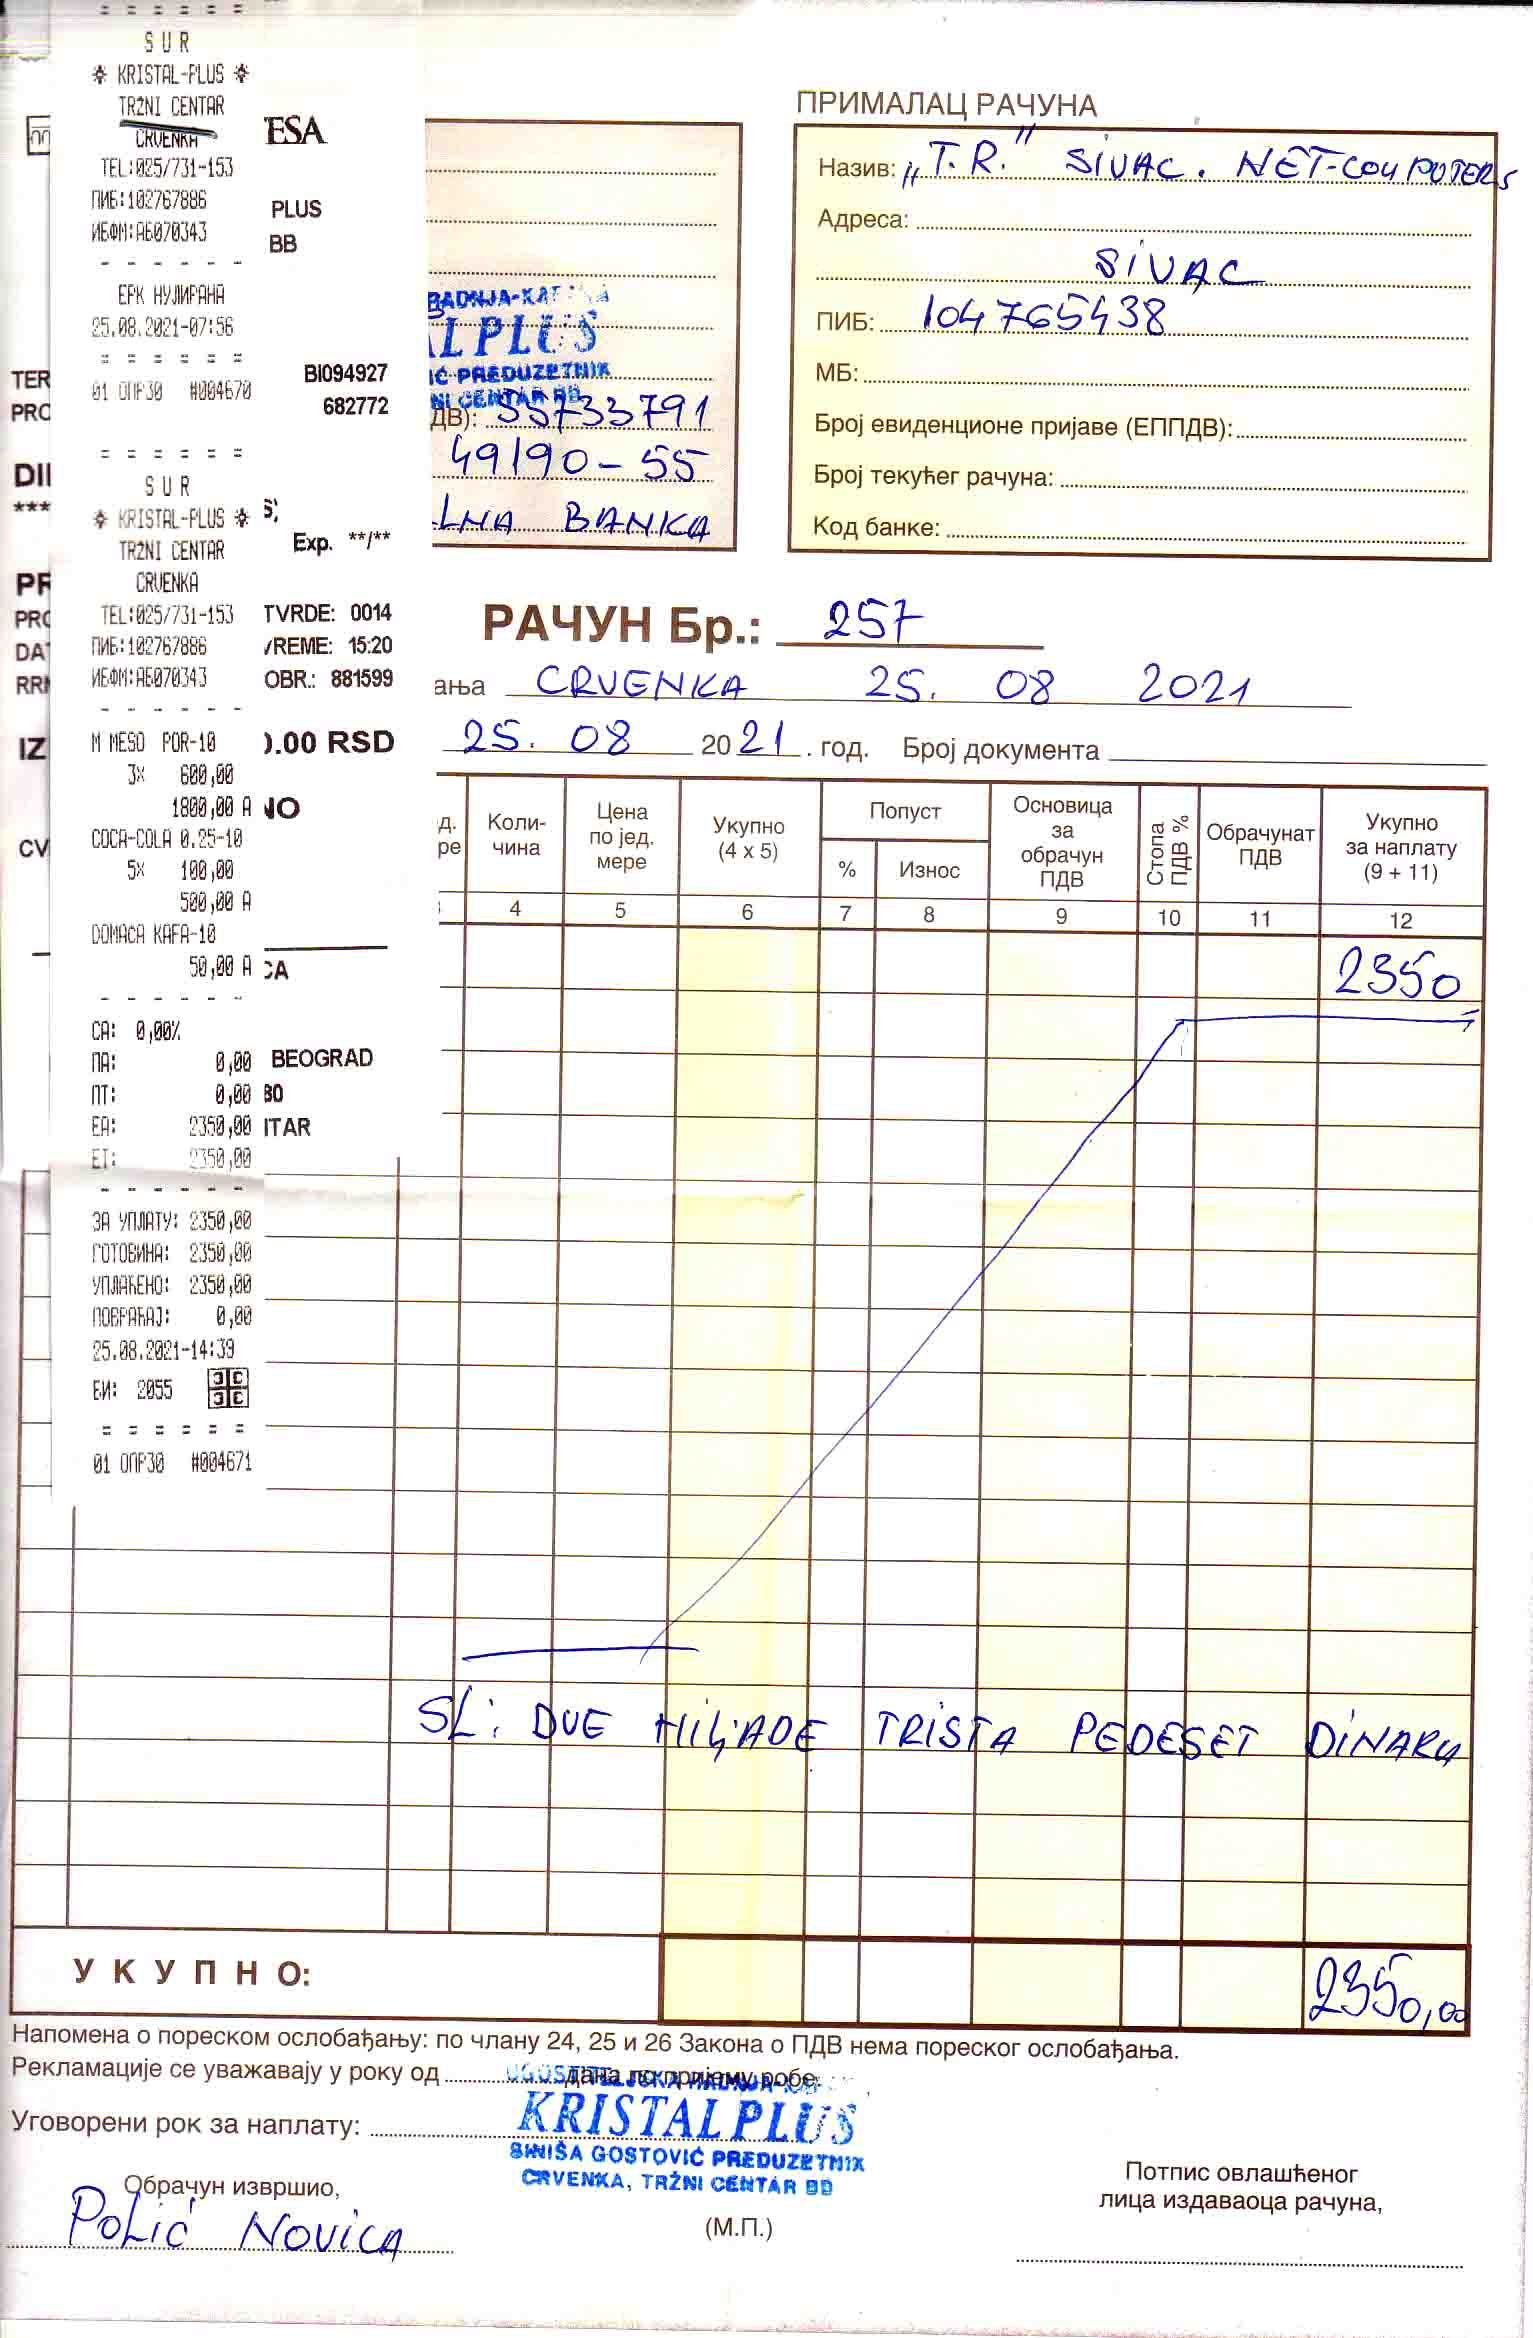 SUR
* KRISTAL-PLUS *
TRŽNI CENTAR
CRVENKA
TEL:025/731-153
ПИБ:102767886
ИБФМ:АБ070343
ЕРК НУЛИРАНА
25.08.2021-07:56
01 ОПР30 #004670
SUR
* KRISTAL-PLUS *
TRŽNI CENTAR
CRVENKA
TEL:025/731-153
ПИБ:102767886
ИБФМ:АБ070343
M MESO POR-10
3x 600,00
1800,00 А
COCA-COLA 0.25-10
5x 100,00
500,00 А
DOMACA KAFA-10
50,00 А
СА: 0,00%
ПА: 0,00
ПТ: 0,00
ЕА: 2350,00
ЕТ: 2350,00
ЗА УПЛАТУ: 2350,00
ГОТОВИНА: 2350,00
УПЛАЋЕНО: 2350,00
ПОВРАЋАЈ: 0,00
25.08.2021-14:39
БИ: 2055
01 ОПР30 #004671
PLUS
BB
TER
BI094927
PRO
682772
DII
****
Exp. **/**
PR
PRO
TVRDE: 0014
DAT
VREME: 15:20
RRN
OBR.: 881599
IZ
0.00 RSD
NO
CV
CA
BEOGRAD
BO
ITAR
RADNJA-KAF
AL PLUS
IĆ PREDUZETNIK
NI CENTAR BB
ДВ): 55733791
49190-55
LNA BANKA
ПРИМАЛАЦ РАЧУНА
Назив: "T.R." SIVAC. NET-COMPUTERS
Адреса:
SIVAC
ПИБ: 104765438
МБ:
Број евиденционе пријаве (ЕППДВ):
Број текућег рачуна:
Код банке:
РАЧУН Бр.: 257
ања CRVENKA 25. 08 2021
25. 08 2021. год. Број документа
д. ре
Коли-чина
Цена по јед. мере
Укупно (4 x 5)
Попуст
%
Износ
Основица за обрачун ПДВ
Стопа ПДВ %
Обрачунат ПДВ
Укупно за наплату (9 + 11)
4 5 6 7 8 9 10 11 12
2350
SL: DVE HILJADE TRISTA PEDESET DINARA
УКУПНО: 2350,00
Напомена о пореском ослобађању: по члану 24, 25 и 26 Закона о ПДВ нема пореског ослобађања.
Рекламације се уважавају у року од дана по пријему робе.
Уговорени рок за наплату:
UGOSTITELJSKA RADNJA
KRISTAL PLUS
SINIŠA GOSTOVIĆ PREDUZETNIK
CRVENKA, TRŽNI CENTAR BB
Обрачун извршио,
POLIĆ NOVICA
(М.П.)
Потпис овлашћеног
лица издаваоца рачуна,